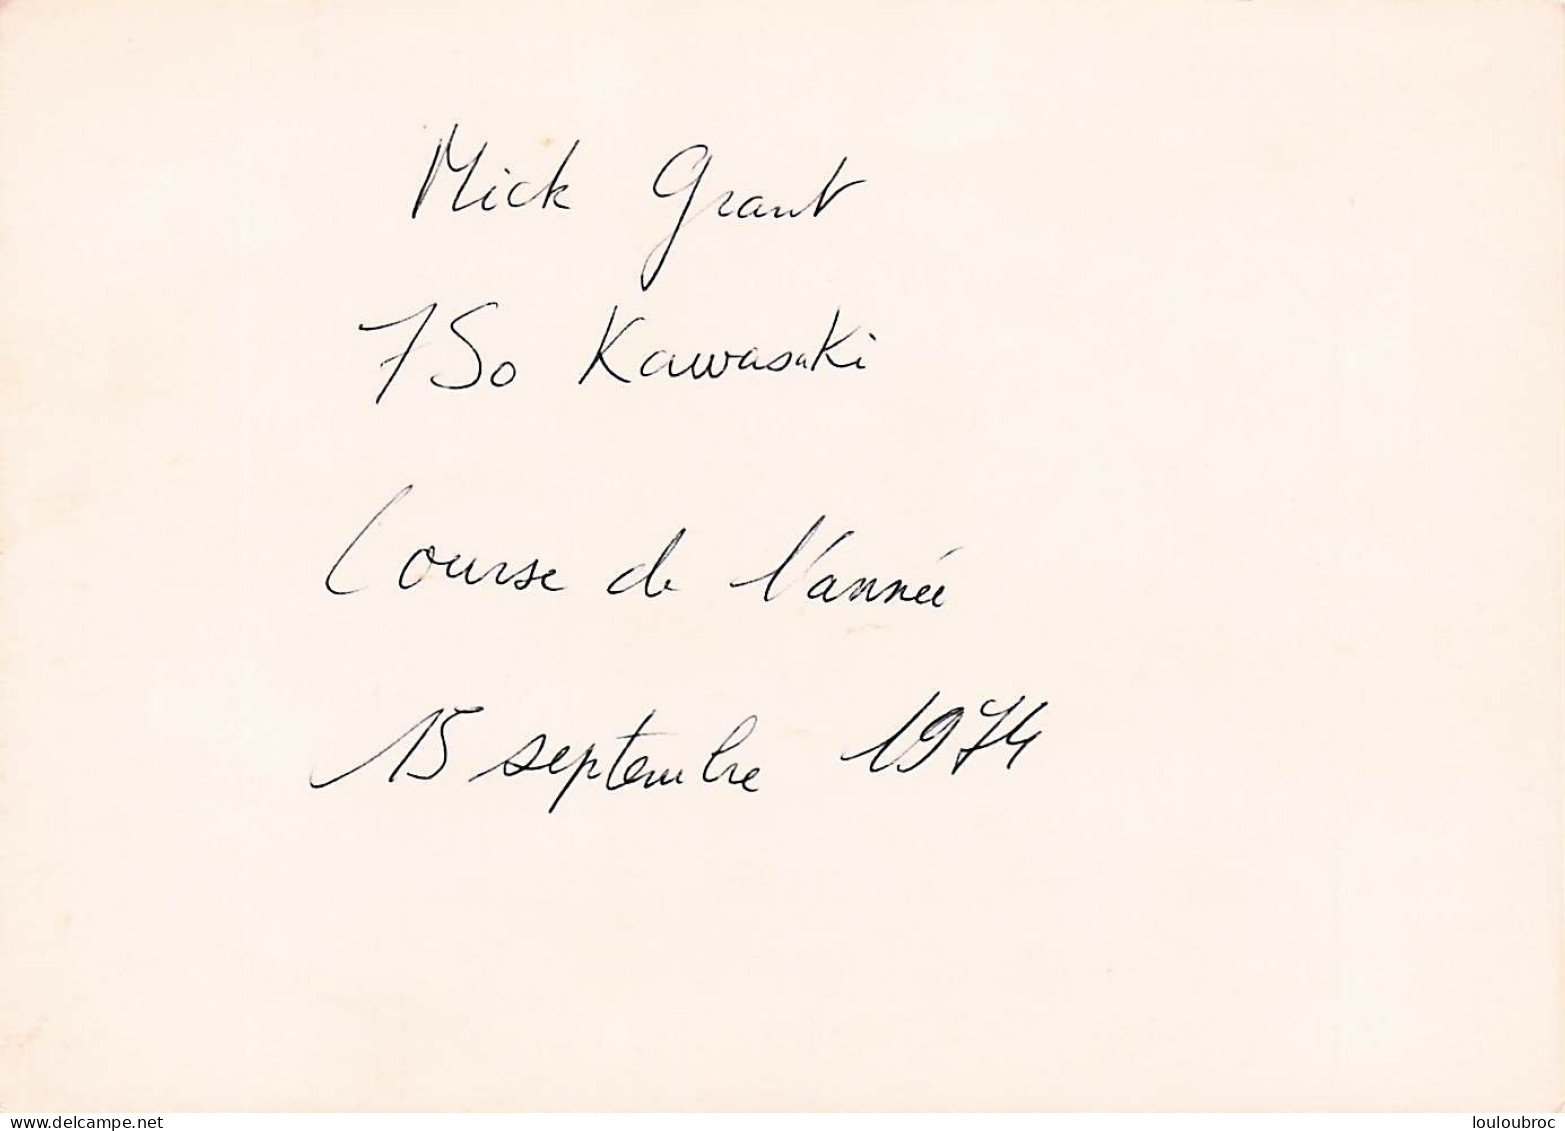 Mick Grant
750 Kawasaki
Course de l'année
15 septembre 1974
www.delcampe.net
louloubroc